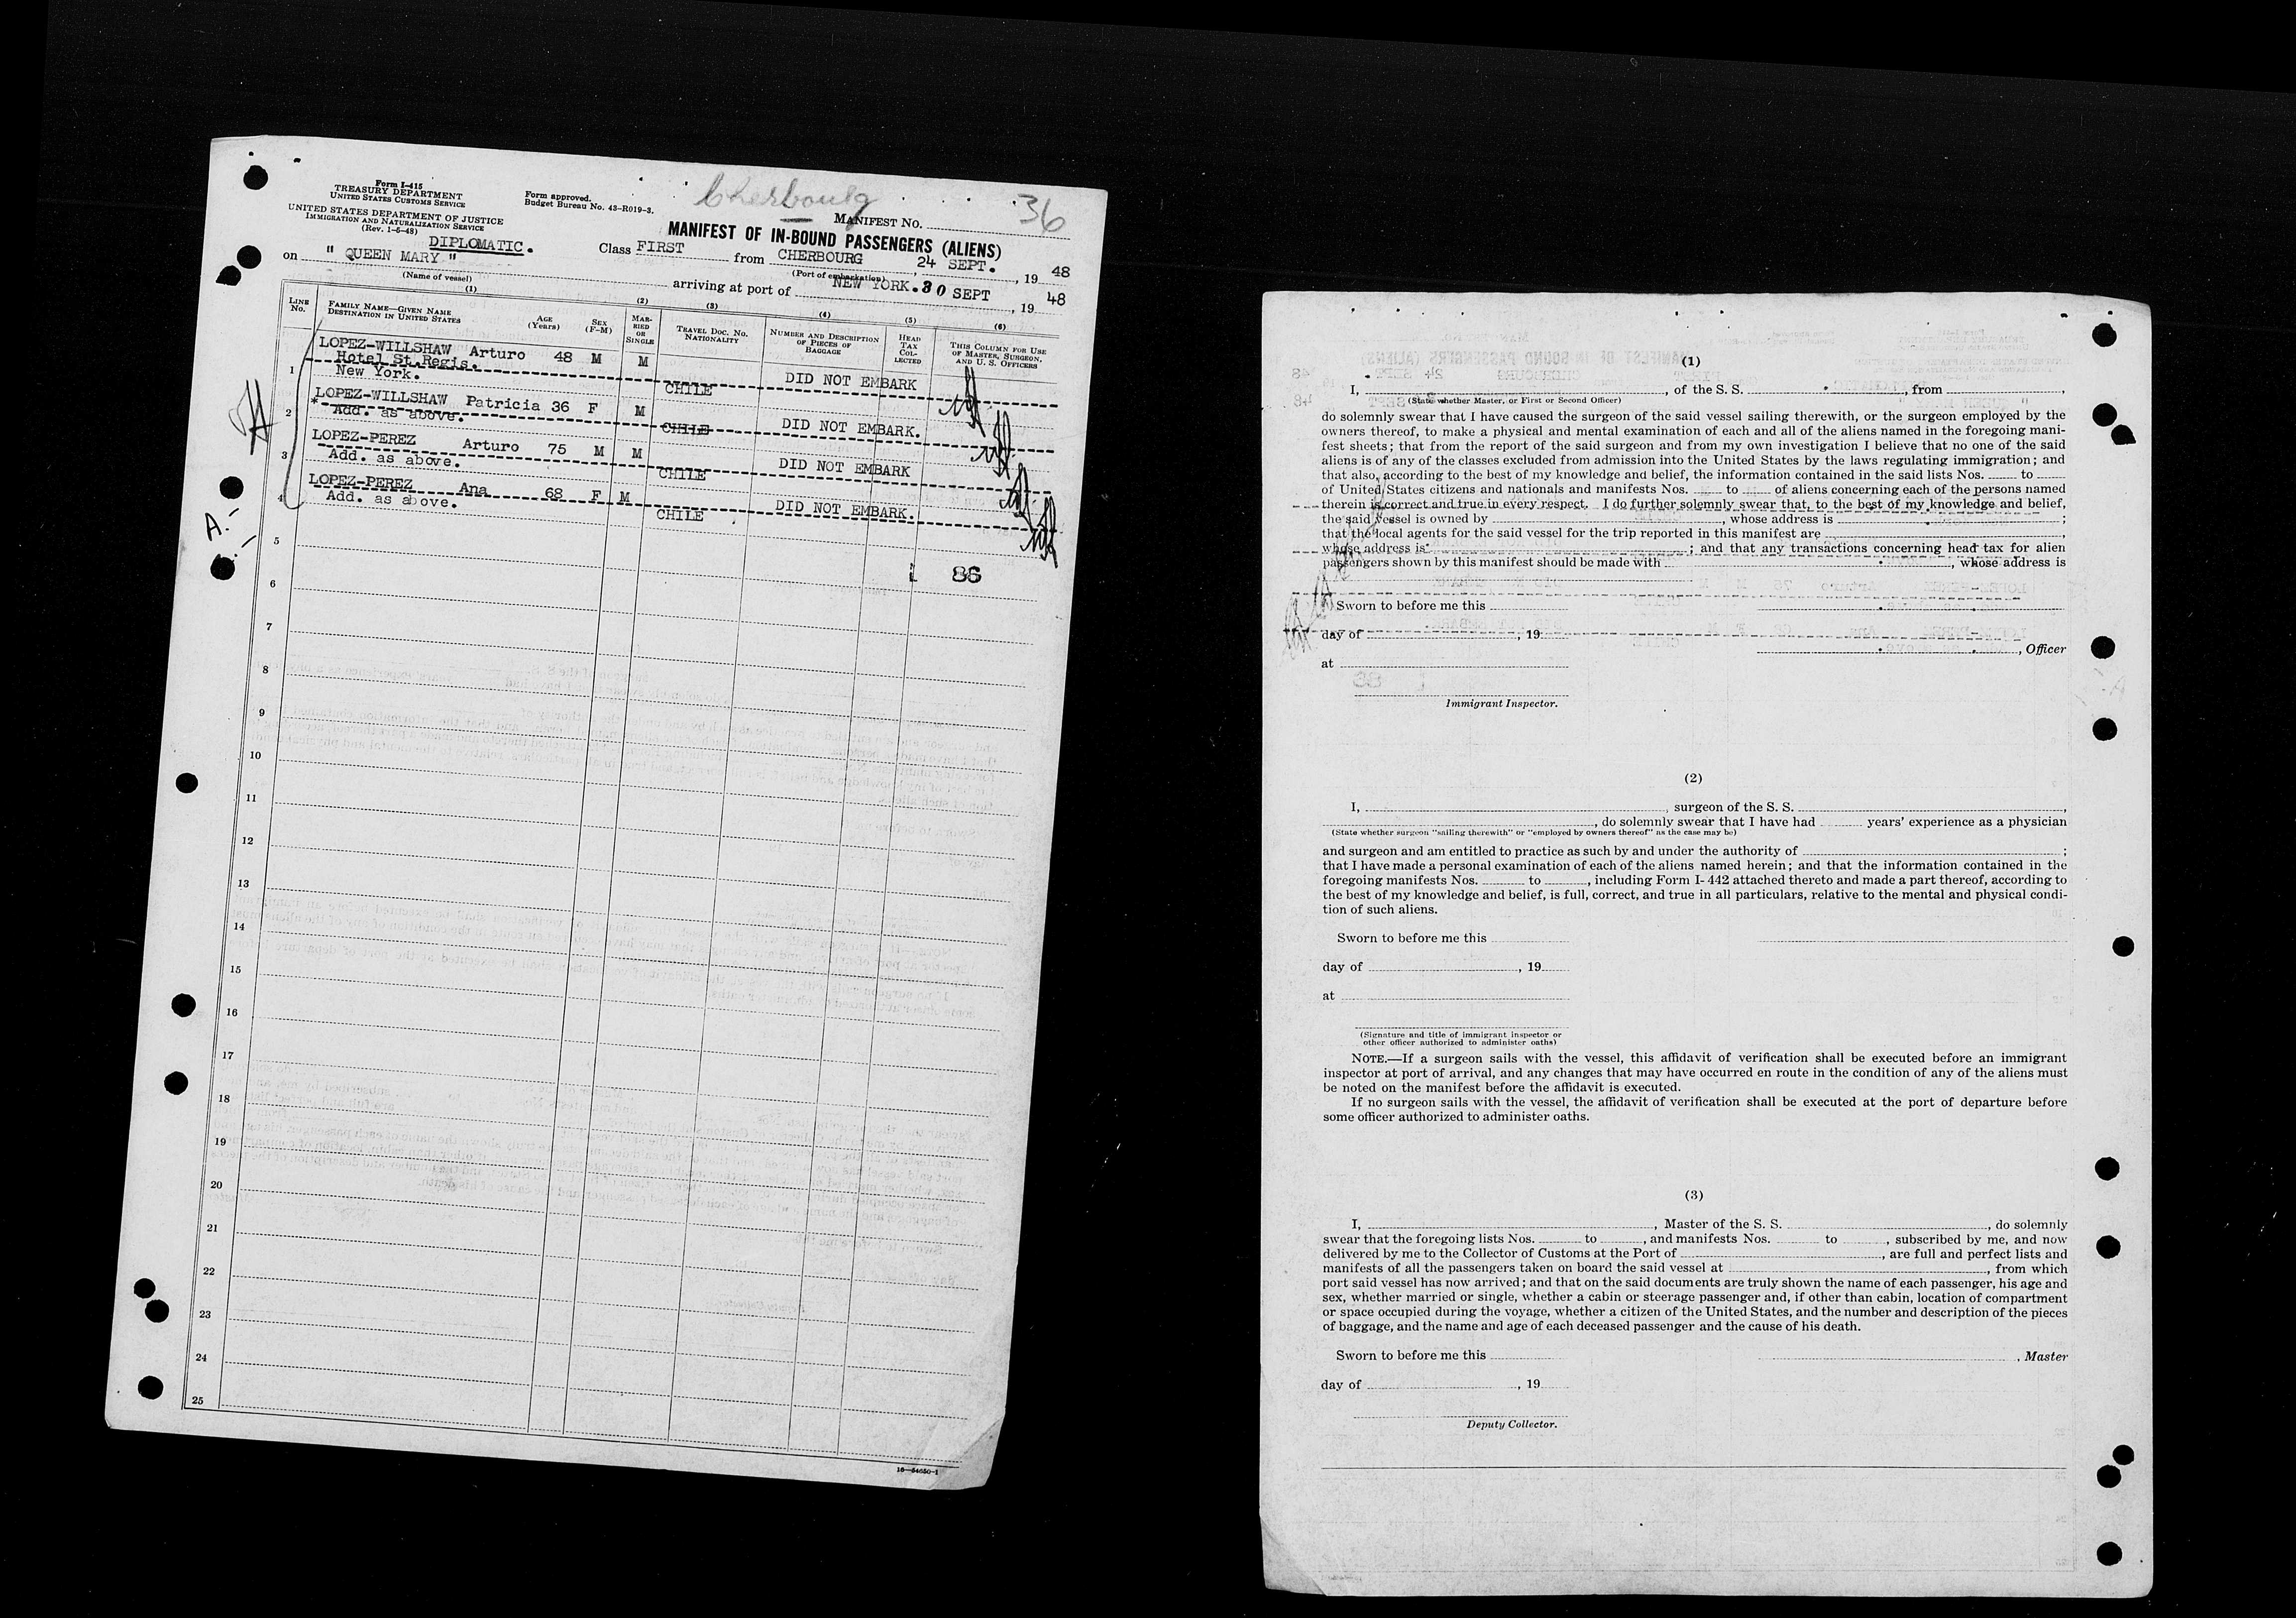 Cherbourg
36
Form I-415
TREASURY DEPARTMENT
UNITED STATES CUSTOMS SERVICE
UNITED STATES DEPARTMENT OF JUSTICE
IMMIGRATION AND NATURALIZATION SERVICE
(Rev. 1-5-48)
Form approved.
Budget Bureau No. 43-R019-3.
MANIFEST No.
MANIFEST OF IN-BOUND PASSENGERS (ALIENS)
DIPLOMATIC.
Class FIRST from CHERBOURG, 24 SEPT., 19 48
on " QUEEN MARY "
(Name of vessel)
(Port of embarkation)
arriving at port of NEW YORK. 30 SEPT, 19 48
(1) (2) (3) (4) (5) (6)
LINE No.
FAMILY NAME—GIVEN NAME DESTINATION IN UNITED STATES
AGE (Years)
SEX (F-M)
MARRIED OR SINGLE
TRAVEL DOC. NO. NATIONALITY
NUMBER AND DESCRIPTION OF PIECES OF BAGGAGE
HEAD TAX COLLECTED
THIS COLUMN FOR USE OF MASTER, SURGEON, AND U. S. OFFICERS
1 LOPEZ-WILLSHAW Arturo 48 M M
Hotel St.Regis.
New York. CHILE DID NOT EMBARK
2 LOPEZ-WILLSHAW Patricia 36 F M
* Add. as above. CHILE DID NOT EMBARK.
3 LOPEZ-PEREZ Arturo 75 M M
Add. as above. CHILE DID NOT EMBARK
4 LOPEZ-PEREZ Ana 68 F M
Add. as above. CHILE DID NOT EMBARK.
A.-
5
86
6
7
8
9
10
11
12
13
14
15
16
17
18
19
20
21
22
23
24
25
16—54650-1
(1)
I, , of the S. S. , from ,
(State whether Master, or First or Second Officer)
do solemnly swear that I have caused the surgeon of the said vessel sailing therewith, or the surgeon employed by the
owners thereof, to make a physical and mental examination of each and all of the aliens named in the foregoing mani-
fest sheets; that from the report of the said surgeon and from my own investigation I believe that no one of the said
aliens is of any of the classes excluded from admission into the United States by the laws regulating immigration; and
that also, according to the best of my knowledge and belief, the information contained in the said lists Nos. to
of United States citizens and nationals and manifests Nos. to of aliens concerning each of the persons named
therein is correct and true in every respect. I do further solemnly swear that, to the best of my knowledge and belief,
the said vessel is owned by , whose address is ;
that the local agents for the said vessel for the trip reported in this manifest are ,
whose address is ; and that any transactions concerning head tax for alien
passengers shown by this manifest should be made with , whose address is
Sworn to before me this
day of , 19
, Officer
at
Immigrant Inspector.
(2)
I, , surgeon of the S. S. ,
, do solemnly swear that I have had years' experience as a physician
(State whether surgeon "sailing therewith" or "employed by owners thereof" as the case may be)
and surgeon and am entitled to practice as such by and under the authority of ;
that I have made a personal examination of each of the aliens named herein; and that the information contained in the
foregoing manifests Nos. to , including Form I-442 attached thereto and made a part thereof, according to
the best of my knowledge and belief, is full, correct, and true in all particulars, relative to the mental and physical condi-
tion of such aliens.
Sworn to before me this
day of , 19
at
(Signature and title of immigrant inspector or
other officer authorized to administer oaths)
NOTE.—If a surgeon sails with the vessel, this affidavit of verification shall be executed before an immigrant
inspector at port of arrival, and any changes that may have occurred en route in the condition of any of the aliens must
be noted on the manifest before the affidavit is executed.
If no surgeon sails with the vessel, the affidavit of verification shall be executed at the port of departure before
some officer authorized to administer oaths.
(3)
I, , Master of the S. S. , do solemnly
swear that the foregoing lists Nos. to , and manifests Nos. to , subscribed by me, and now
delivered by me to the Collector of Customs at the Port of , are full and perfect lists and
manifests of all the passengers taken on board the said vessel at , from which
port said vessel has now arrived; and that on the said documents are truly shown the name of each passenger, his age and
sex, whether married or single, whether a cabin or steerage passenger and, if other than cabin, location of compartment
or space occupied during the voyage, whether a citizen of the United States, and the number and description of the pieces
of baggage, and the name and age of each deceased passenger and the cause of his death.
Sworn to before me this
, Master
day of , 19
Deputy Collector.